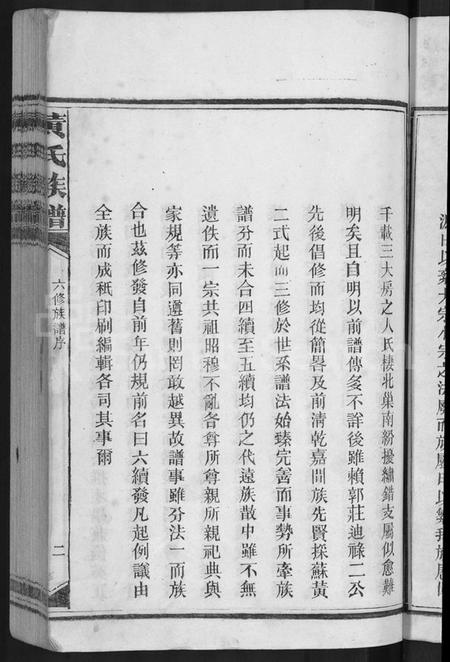 千載三大房之人氏棲北巢南紛擾繡錯支屬似愈難
明矣且自明以前譜傳筊不詳後雖賴郭莊迪祿二公
先後倡修而均從簡畧及前清乾嘉間族先賢採蘇黃
二式起而三修於世系譜法始臻完善而事勢所牽族
譜分而未合四續至五續均仍之代遠族散中雖不無
遺佚而一宗共祖昭穆不亂各尊所尊親所親祀典與
家規等亦同遵舊則罔敢越異故譜事雖分法一而族
合也茲修發自前年仍規前名曰六續發凡起例議由
全族而成秖印刷編輯各司其事爾
黃氏族譜
六修族譜序
二